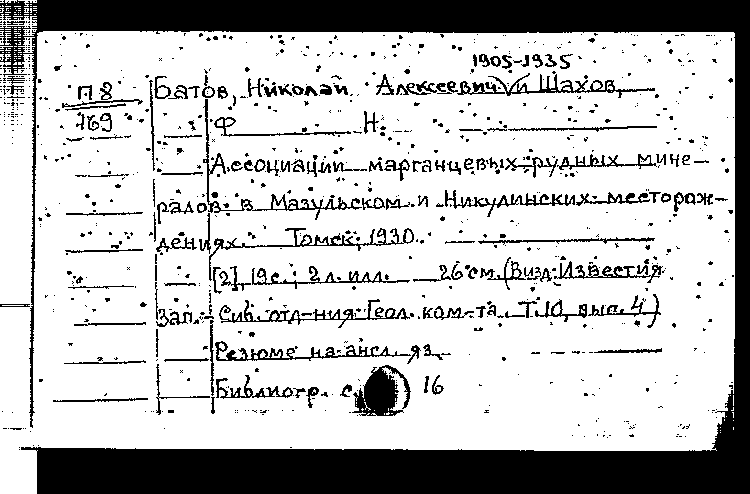 1905-1935
П 8 Батов, Николай Алексеевич и Шахов,
169 Ф Н.
Ассоциации марганцевых рудных мине-
ралов в Мазульском и Никулинских месторож-
дениях. Томск, 1930.
[2], 19 с.; 2 л. илл. 26 см. (В изд: Известия
Зап.-Сиб. отд-ния Геол. ком-та. Т. 10, вып. 4)
Резюме на англ. яз.
Библиогр. с. 16